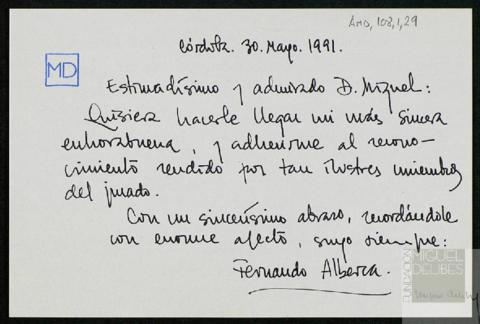 AMD, 108, 1, 29
Córdoba. 30. Mayo. 1991.
MD
Estimadísimo y admirado D. Miguel:
Quisiera hacerle llegar mi más sincera
enhorabuena, y adherirme al recono-
cimiento rendido por tan ilustres miembros
del jurado.
Con un sincerísimo abrazo, recordándole
con enorme afecto, suyo siempre:
Fernando Alberca.
FUNDACIÓN
MIGUEL
DELIBES